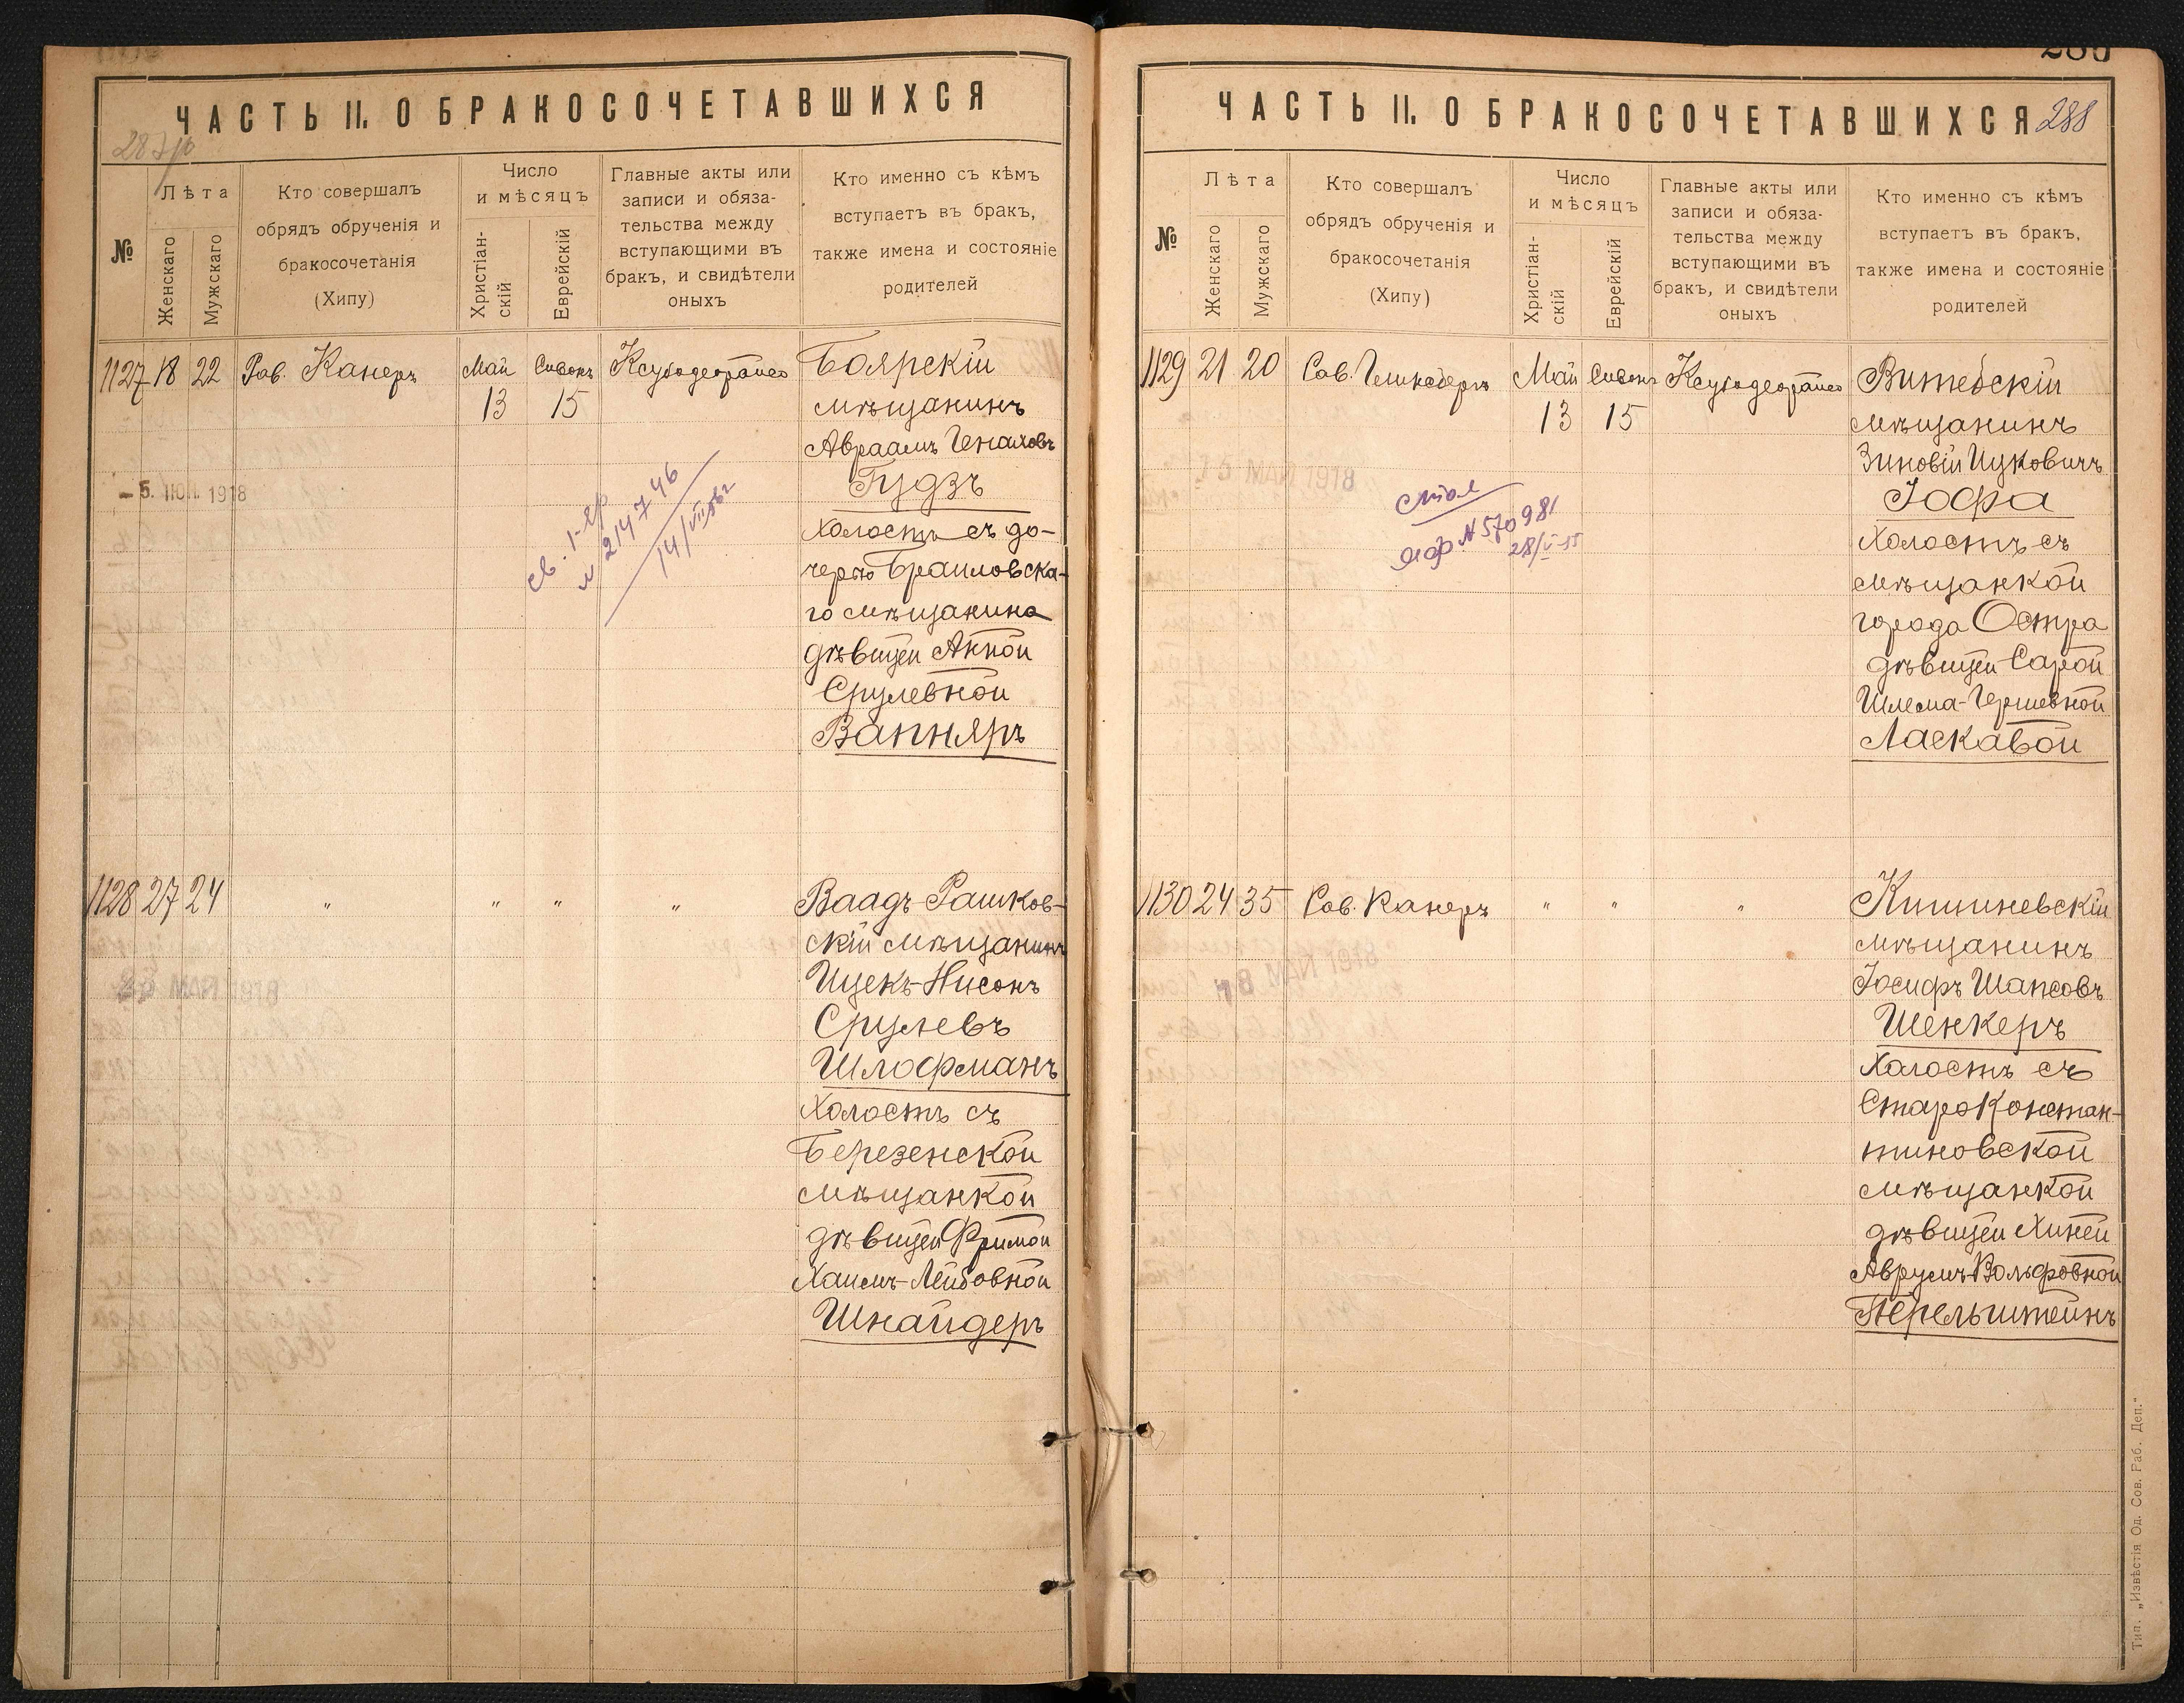 ЧАСТЬ II. О БРАКОСОЧЕТАВШИХСЯ
№
Лѣта
Женскаго
Мужскаго
Кто совершалъ
обрядъ обрученія и
бракосочетанія
(Хипу)
Число
и мѣсяцъ
Христіан-
скій
Еврейскій
Главные акты или
записи и обяза-
тельства между
вступающими въ
бракъ, и свидѣтели
оныхъ
Кто именно съ кѣмъ
вступаетъ въ бракъ,
также имена и состояніе
родителей
1127 18 22 Рав. Канеръ Май Сивонъ Боярскій
13 15 мѣщанинъ
Авраамъ Генаховъ
Гудзъ
- 5. ІЮН. 1918
холостъ съ до-
черью Браиловска-
го мѣщанина
дѣвицей Анной
Срулевной
Вапняръ
№ 2147746
14/VII
1128 27 24 " " " " Ваадъ-Рашков-
скій мѣщанинъ
Ицекъ-Нисонъ
Срулевъ
Шлофманъ
холостъ съ
Березенской
мѣщанкой
дѣвицей Фримой
Хаимъ-Лейбовной
Шнайдеръ
ЧАСТЬ II. О БРАКОСОЧЕТАВШИХСЯ 288
№
Лѣта
Женскаго
Мужскаго
Кто совершалъ
обрядъ обрученія и
бракосочетанія
(Хипу)
Число
и мѣсяцъ
Христіан-
скій
Еврейскій
Главные акты или
записи и обяза-
тельства между
вступающими въ
бракъ, и свидѣтели
оныхъ
Кто именно съ кѣмъ
вступаетъ въ бракъ,
также имена и состояніе
родителей
1129 21 20 Май Сивонъ Витебскій
13 15 мѣщанинъ
Зиновій Ицковичъ
Іофа
холостъ съ
мѣщанкой
города Остра
дѣвицей Сарой
Шлема-Гершевной
Ласкавой
№ 570981
28/V-55
1130 24 35 Канеръ " " " Кишиневскій
мѣщанинъ
Іосифъ Шапсовъ
Шенкеръ
холостъ съ
Староконстан-
тиновской
мѣщанкой
дѣвицей Хиней
Аврумъ-Вольфовной
Перельштейнъ
Тип. „Извѣстія Од. Сов. Раб. Деп."